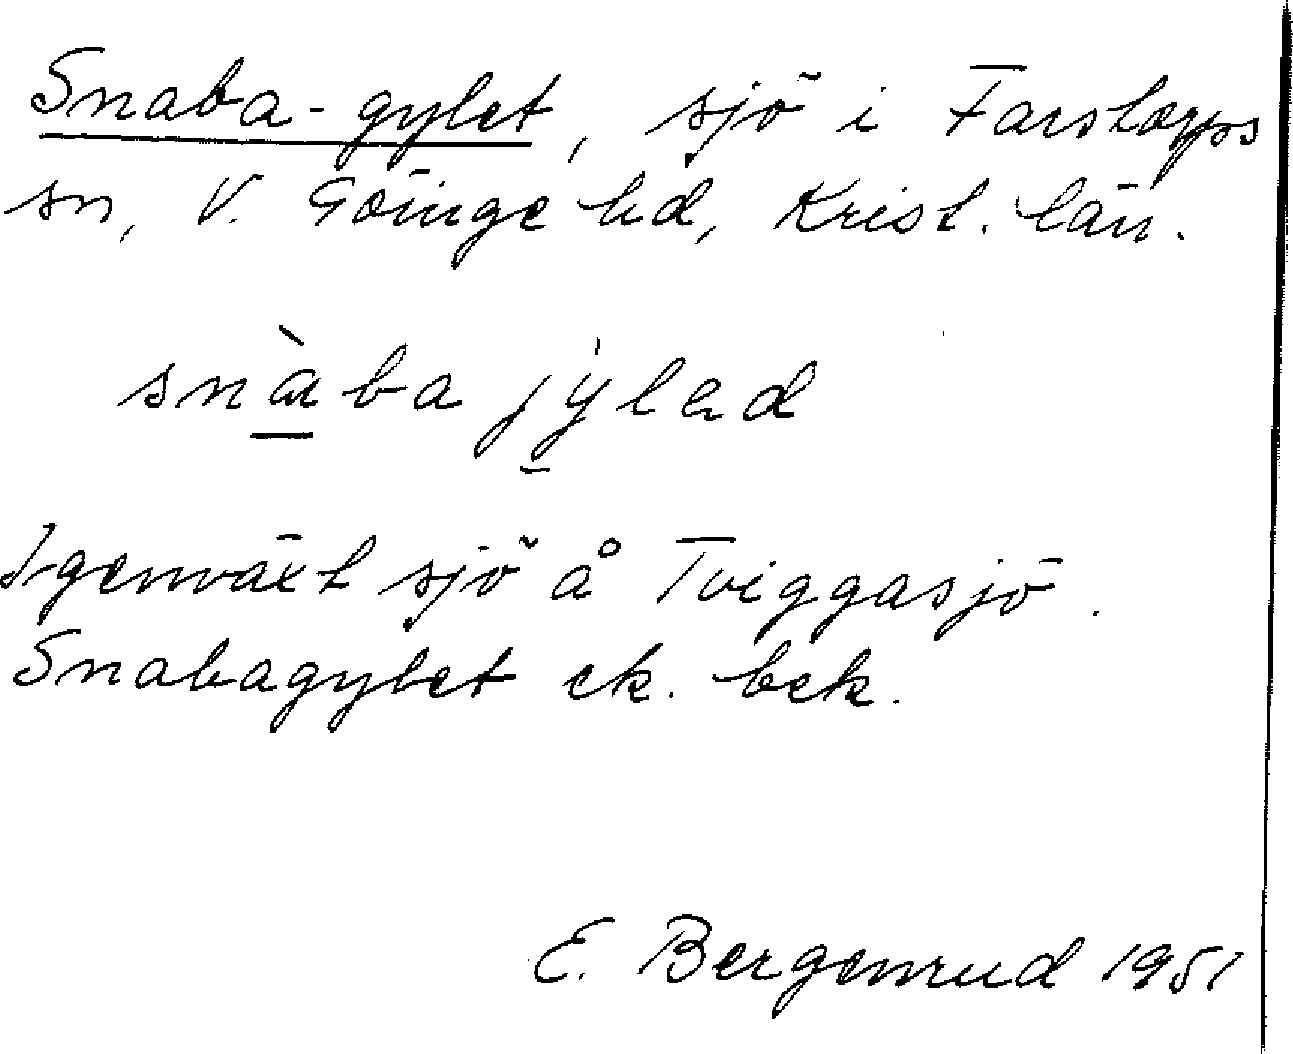 Snaba-gylet, sjö i Farstorps
sn, V. Göinge hd, Krist. län.
snàba jýlad
Igenväxt sjö å Tviggasjö.
Snabagylet ek. bek.
E. Bergenrud 1951